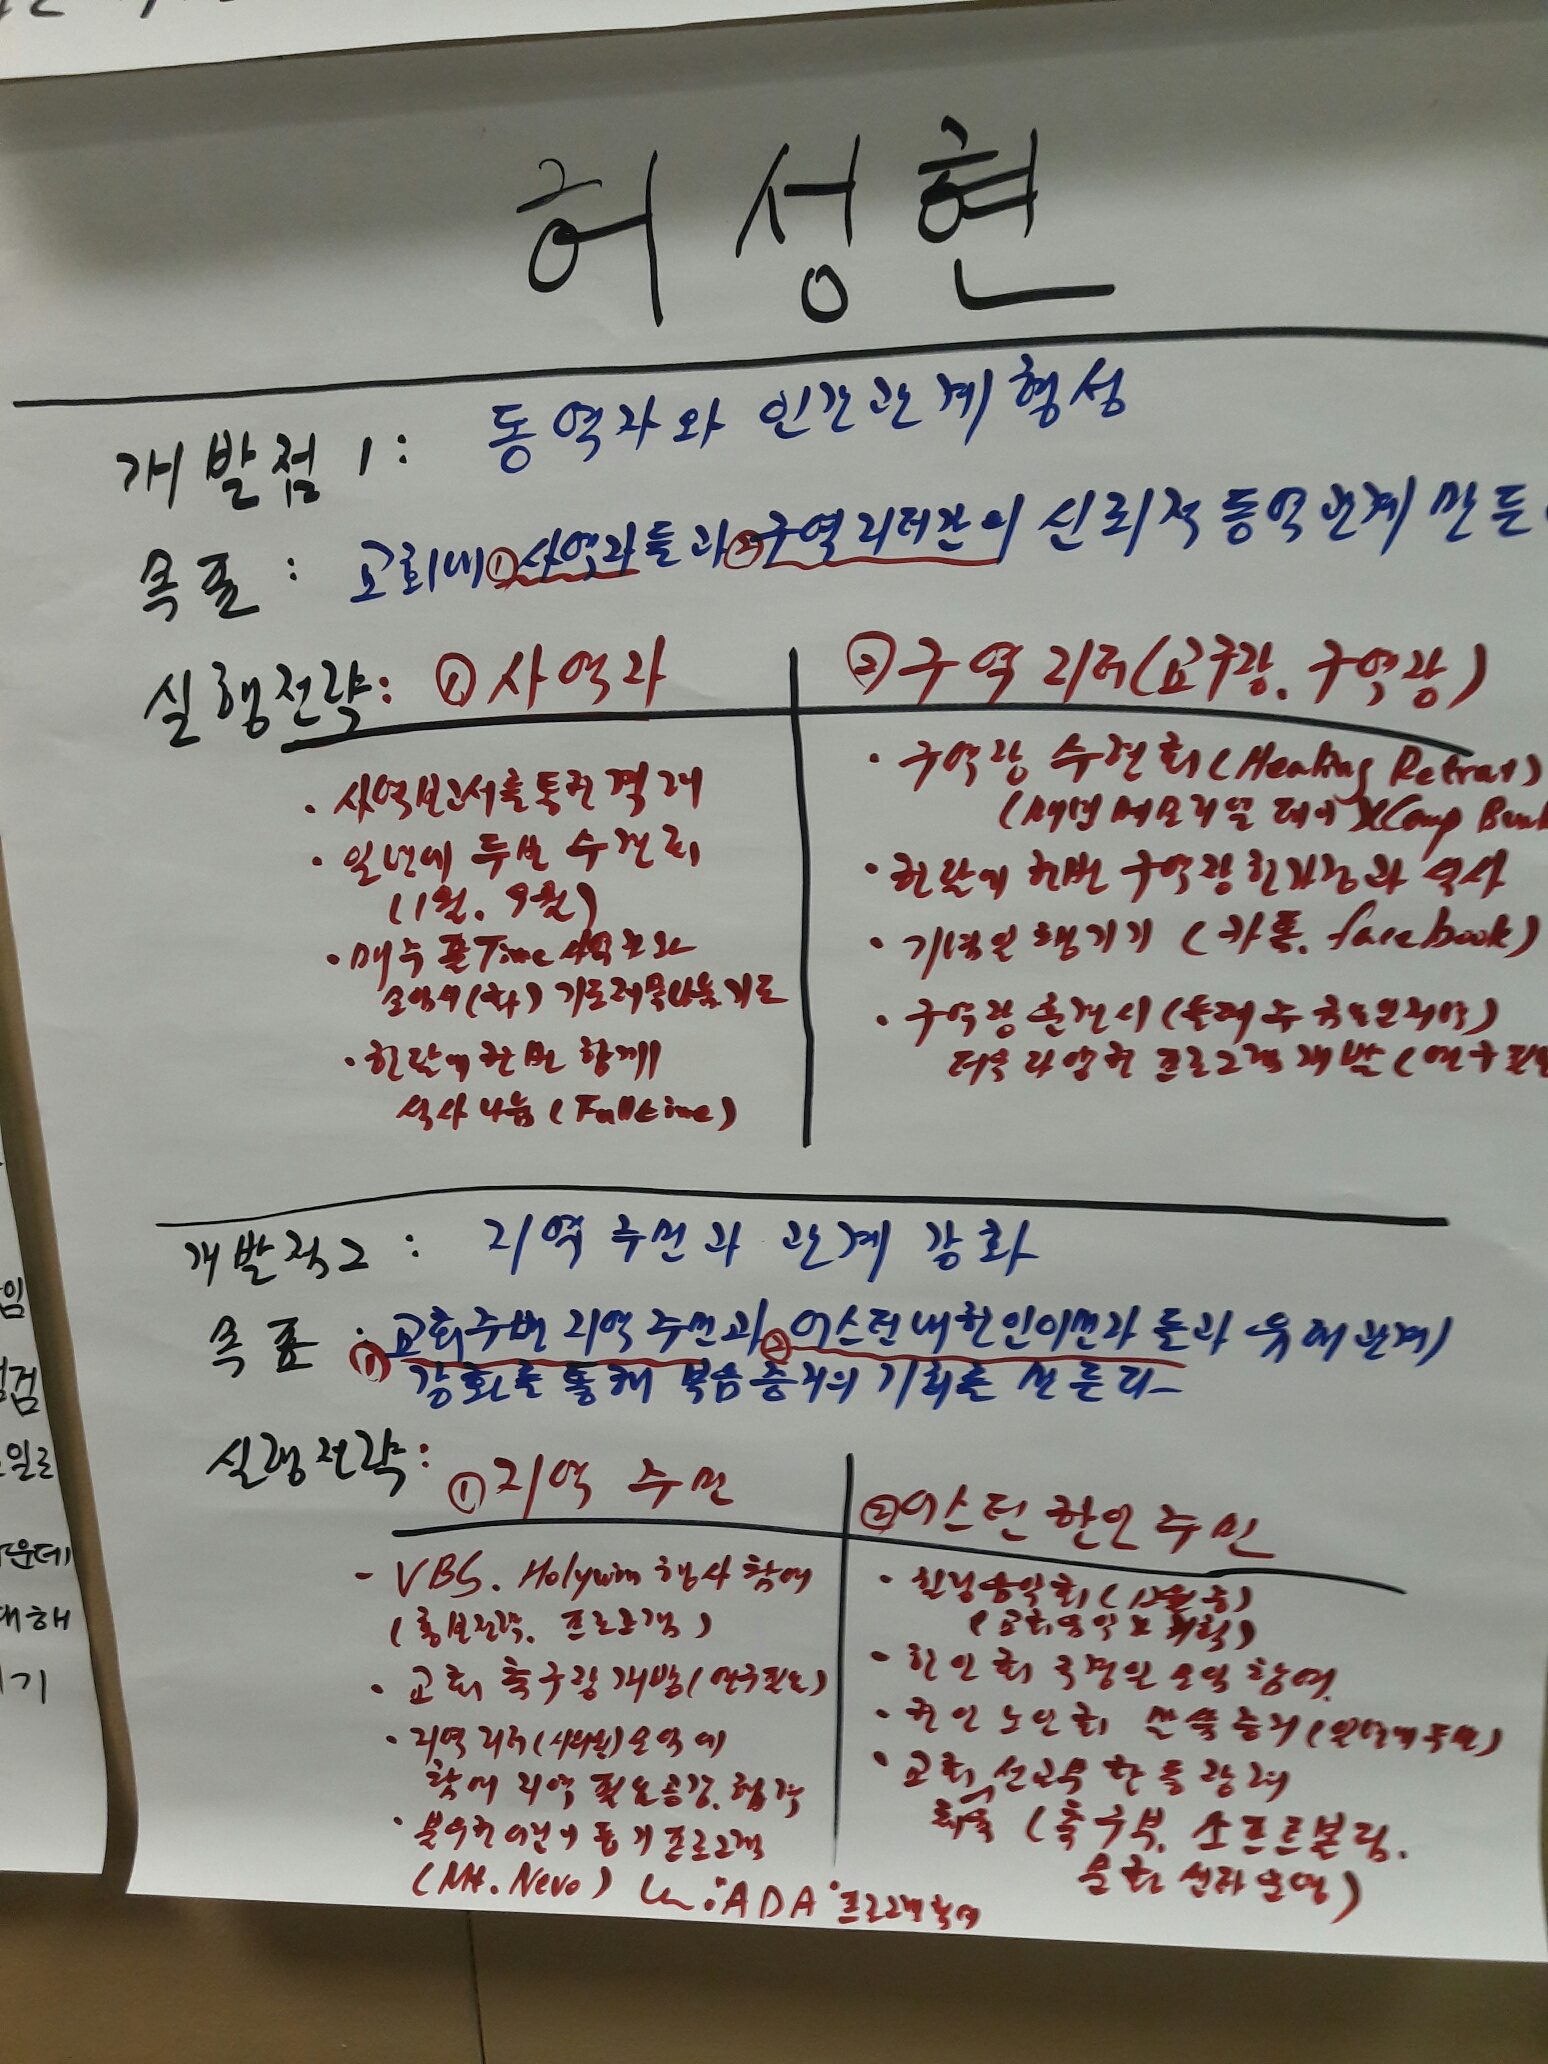 허성현
개발점 1: 동역자와 인간관계형성
목표: 교회내 ①사역자들과 ②구역리더간의 신뢰적 동역관계 만든
실행전략: ①사역자
②구역 리더(교구장, 구역장)
· 사역보고서를 통한 결재
· 일년에 두번 수련회
(1월, 9월)
· 매주 풀Time 사역자와
(화) 기도제목나눔, 기도
· 한달에 한번 함께
식사 나눔 (Fulltime)
· 구역장 수련회 (Healing Retreat)
(매년 메모리얼 데이)(Camp
· 한달에 한번 구역장 한가정과 식사
· 기념일 챙기기 (카톡, facebook)
· 구역장 훈련시
더욱 다양한 프로그램 개발 (연구
개발점2: 지역 주민과 관계 강화
목표: ①교회주변 지역 주민과 ②이스턴내 한인이민자 들과 유대관계
강화를 통해 복음증거의 기회를 만든다-
실행전략: ①지역 주민
②이스턴 한인 주민
- VBS, Holywin 행사 참여
(홍보전략, 프로그램)
· 교회 축구장 개방 (연구필요)
· 지역 리더 모임에
참여 지역 필요공감, 협력
· 불우한 어린이 돕기 프로그램
(Mt. Nevo) "ADA" 프로그램 참여
· 힐링음악회 (12월 중)
(교회음악
· 한인회 국경일 모임 참여
· 한인 노인회 만찬 (일년에 두번)
· 교회
(축구부, 소프트볼팀,
문화 선교 운영)
임
점검
일로
가운데
대해
기